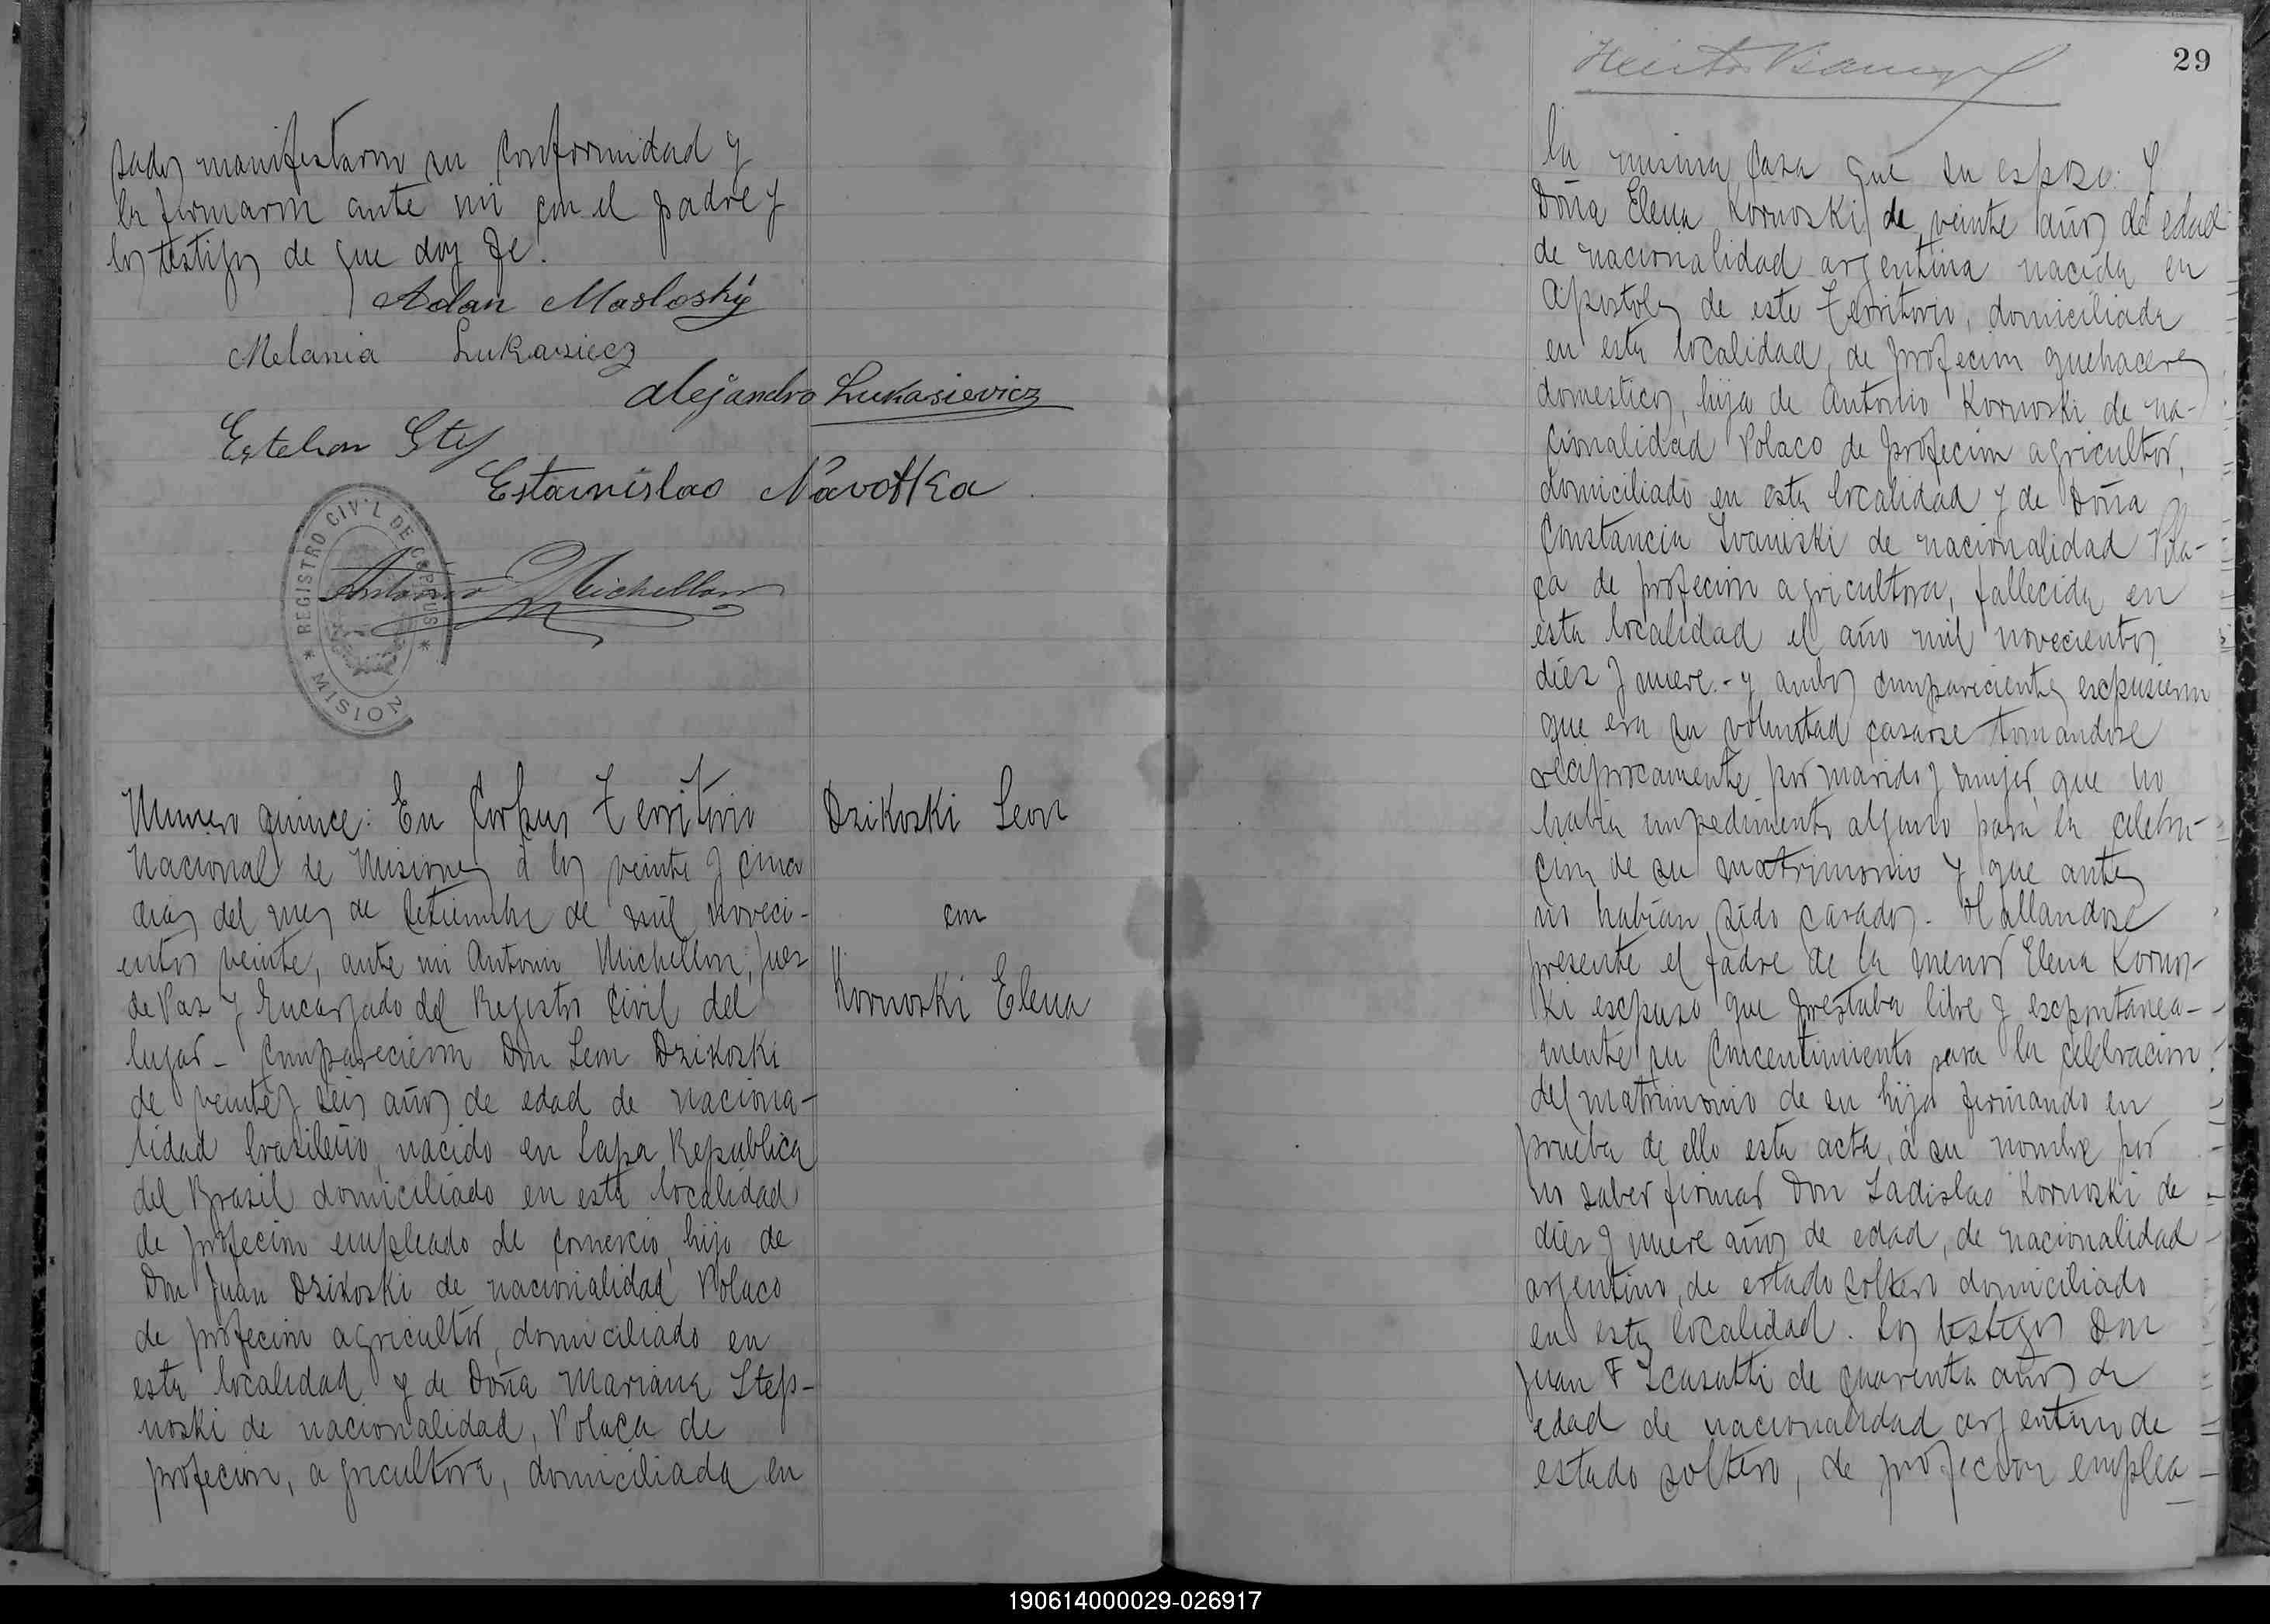 sados manifestaron su conformidad y
la firmaron ante mi con el padre y
los testigos de que doy fe.
Adan Masloský
Melania Lukasiecz
Alejandro Lukasievicz
Esteban Stes
Estanislao Navotka
REGISTRO CIVIL DE CORPUS
* MISION
Antonio Michellon
Numero quince: En Corpus Territorio
Nacional de Misiones á los veinte y cinco
dias del mes de Setiembre de mil noveci-
entos veinte, ante mi Antonio Michellon, Juez
de Paz y Encargado del Registro Civil del
lugar - Comparecieron Don Leon Dzikoski
de veinte y seis años de edad de naciona-
lidad brasileño, nacido en Lapa Republica
del Brasil domiciliado en esta localidad
de profecion empleado de comercio, hijo de
Don Juan Dzikoski de nacionalidad Polaco
de profecion agricultor, domiciliado en
esta localidad y de Doña Mariana Step-
noski de nacionalidad, Polaca de
profecion, agricultora, domiciliada en
Dzikoski Leon
con
Kornoski Elena
29
la misma casa que su esposo: Y
Doña Elena Kornoski de veinte años de edad
de nacionalidad argentina nacida en
Apostoles de este Territorio, domiciliada
en esta localidad, de profecion quehaceres
domesticos, hija de Antonio Kornoski de na-
cionalidad Polaco de profecion agricultor,
domiciliado en esta localidad y de Doña
Constancia Ivaniski de nacionalidad Pola-
ca de profecion agricultora, fallecida en
esta localidad el año mil novecientos
diez y nueve.- y ambos comparecientes escpusieron
que era su voluntad casarse tomandose
reciprocamente por marido y mujer, que no
habia impedimento alguno para la celebra-
cion de su matrimonio y que antes
no habian sido casados. Hallandose
presente el padre de la menor Elena Kornos-
ki escpuso que prestaba libre y escpontanea-
mente su concentimiento para la celebracion
del matrimonio de su hija firmando en
prueba de ello esta acta, á su nombre por
no saber firmar Don Ladislao Kornoski de
diez y nueve años de edad, de nacionalidad
argentino, de estado soltero domiciliado
en esta localidad. Los testigos Don
Juan F Scasutti de cuarenta años de
edad de nacionalidad argentino de
estado soltero, de profecion emplea-
190614000029-026917